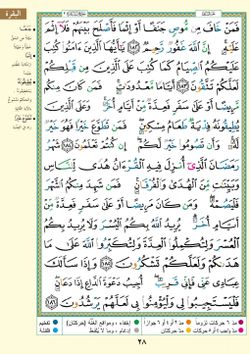 البقرة
فَمَنْ خَافَ مِن مُّوصٍ جَنَفًا أَوْ إِثْمًا فَأَصْلَحَ بَيْنَهُمْ فَلَا إِثْمَ
عَلَيْهِ إِنَّ اللَّهَ غَفُورٌ رَّحِيمٌ ١٨٢ يَا أَيُّهَا الَّذِينَ آمَنُوا كُتِبَ
عَلَيْكُمُ الصِّيَامُ كَمَا كُتِبَ عَلَى الَّذِينَ مِن قَبْلِكُمْ
لَعَلَّكُمْ تَتَّقُونَ ١٨٣ أَيَّامًا مَّعْدُودَاتٍ فَمَن كَانَ مِنكُم
مَّرِيضًا أَوْ عَلَى سَفَرٍ فَعِدَّةٌ مِّنْ أَيَّامٍ أُخَرَ وَعَلَى الَّذِينَ
يُطِيقُونَهُ فِدْيَةٌ طَعَامُ مِسْكِينٍ فَمَن تَطَوَّعَ خَيْرًا فَهُوَ خَيْرٌ
لَّهُ وَأَن تَصُومُوا خَيْرٌ لَّكُمْ إِن كُنتُمْ تَعْلَمُونَ ١٨٤ شَهْرُ
رَمَضَانَ الَّذِي أُنزِلَ فِيهِ الْقُرْآنُ هُدًى لِّلنَّاسِ
وَبَيِّنَاتٍ مِّنَ الْهُدَى وَالْفُرْقَانِ فَمَن شَهِدَ مِنكُمُ الشَّهْرَ
فَلْيَصُمْهُ وَمَن كَانَ مَرِيضًا أَوْ عَلَى سَفَرٍ فَعِدَّةٌ مِّنْ
أَيَّامٍ أُخَرَ يُرِيدُ اللَّهُ بِكُمُ الْيُسْرَ وَلَا يُرِيدُ بِكُمُ
الْعُسْرَ وَلِتُكْمِلُوا الْعِدَّةَ وَلِتُكَبِّرُوا اللَّهَ عَلَى
مَا هَدَاكُمْ وَلَعَلَّكُمْ تَشْكُرُونَ ١٨٥ وَإِذَا سَأَلَكَ
عِبَادِي عَنِّي فَإِنِّي قَرِيبٌ أُجِيبُ دَعْوَةَ الدَّاعِ إِذَا دَعَانِ
فَلْيَسْتَجِيبُوا لِي وَلْيُؤْمِنُوا بِي لَعَلَّهُمْ يَرْشُدُونَ ١٨٦
٢٨